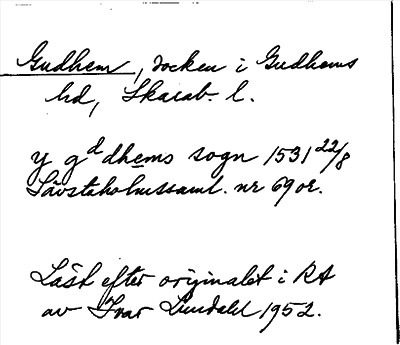 Gudhem, socken i Gudhems
hd, Skarab. l.
y gddhems sogn 1531 22/8
Sävstaholmssaml. nr 69 or.
Läst efter originalet i RA
av Ivar Lundahl 1952.